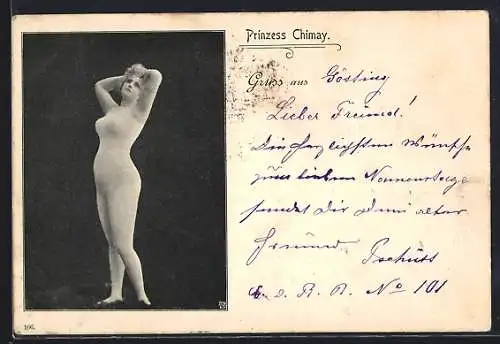 Prinzess Chimay.
Gruss aus Gösting
Lieber Freund!
Die herzlichsten Wünsche
zum lieben Namenstage
sendet Dir Dein alter
Freund Tschüss
R. R. No 101
106.